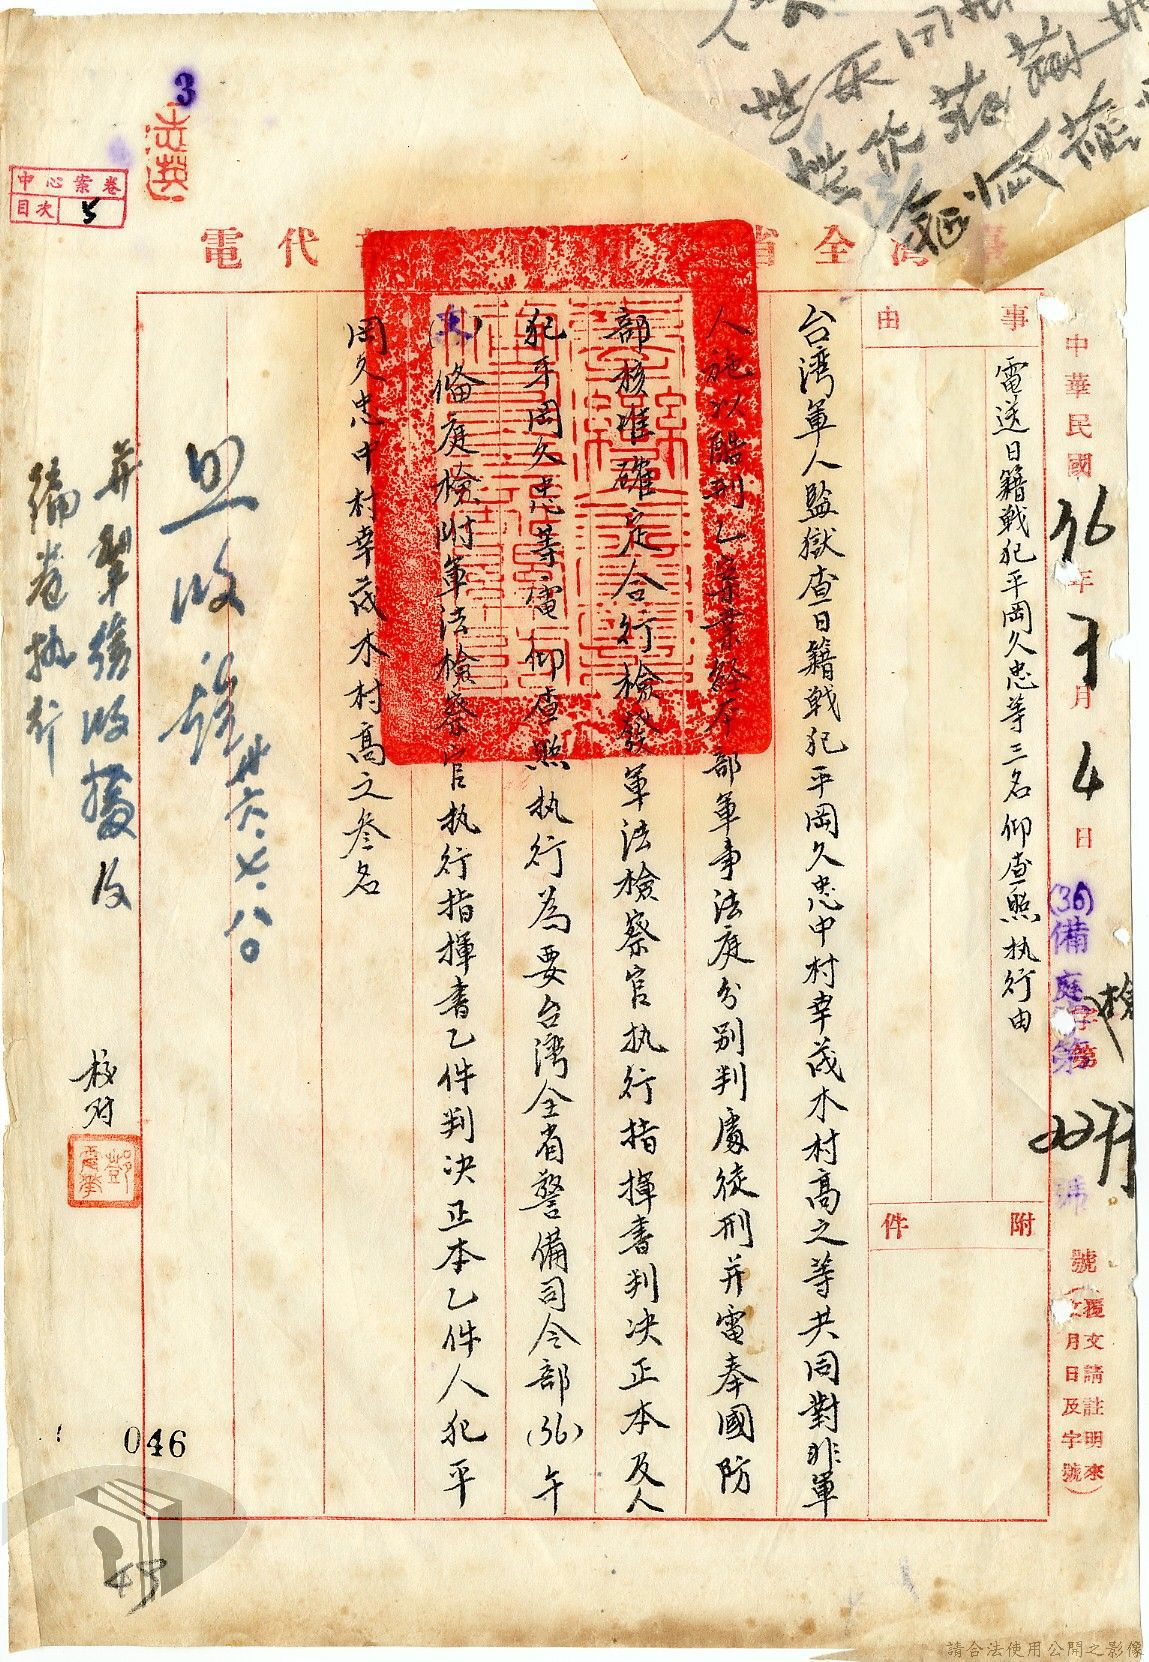 3
中心案卷
目次 5
臺灣全省
代電
中華民國36年7月4日
(36)備庭字第
號
(覆文請註明來文月日及字號)
事由
電送日籍戰犯平岡久忠等三名仰查照执行由
附件
台湾軍人監獄查日籍戰犯平岡久忠中村幸茂木村高之等共同對非軍
人施以酷刑乙案業經本部軍事法庭分別判處徒刑并電奉國防
部核准確定合行檢發軍法檢察官执行指揮書判决正本及人
犯平岡久忠等電仰查照执行為要台湾全省警備司令部(36)午
備庭檢附軍法檢察官执行指揮書乙件判决正本乙件人犯平
岡久忠中村幸茂木村高之叁名
卅六.七.八。
編卷执行
校对
046
43
請合法使用公開之影像